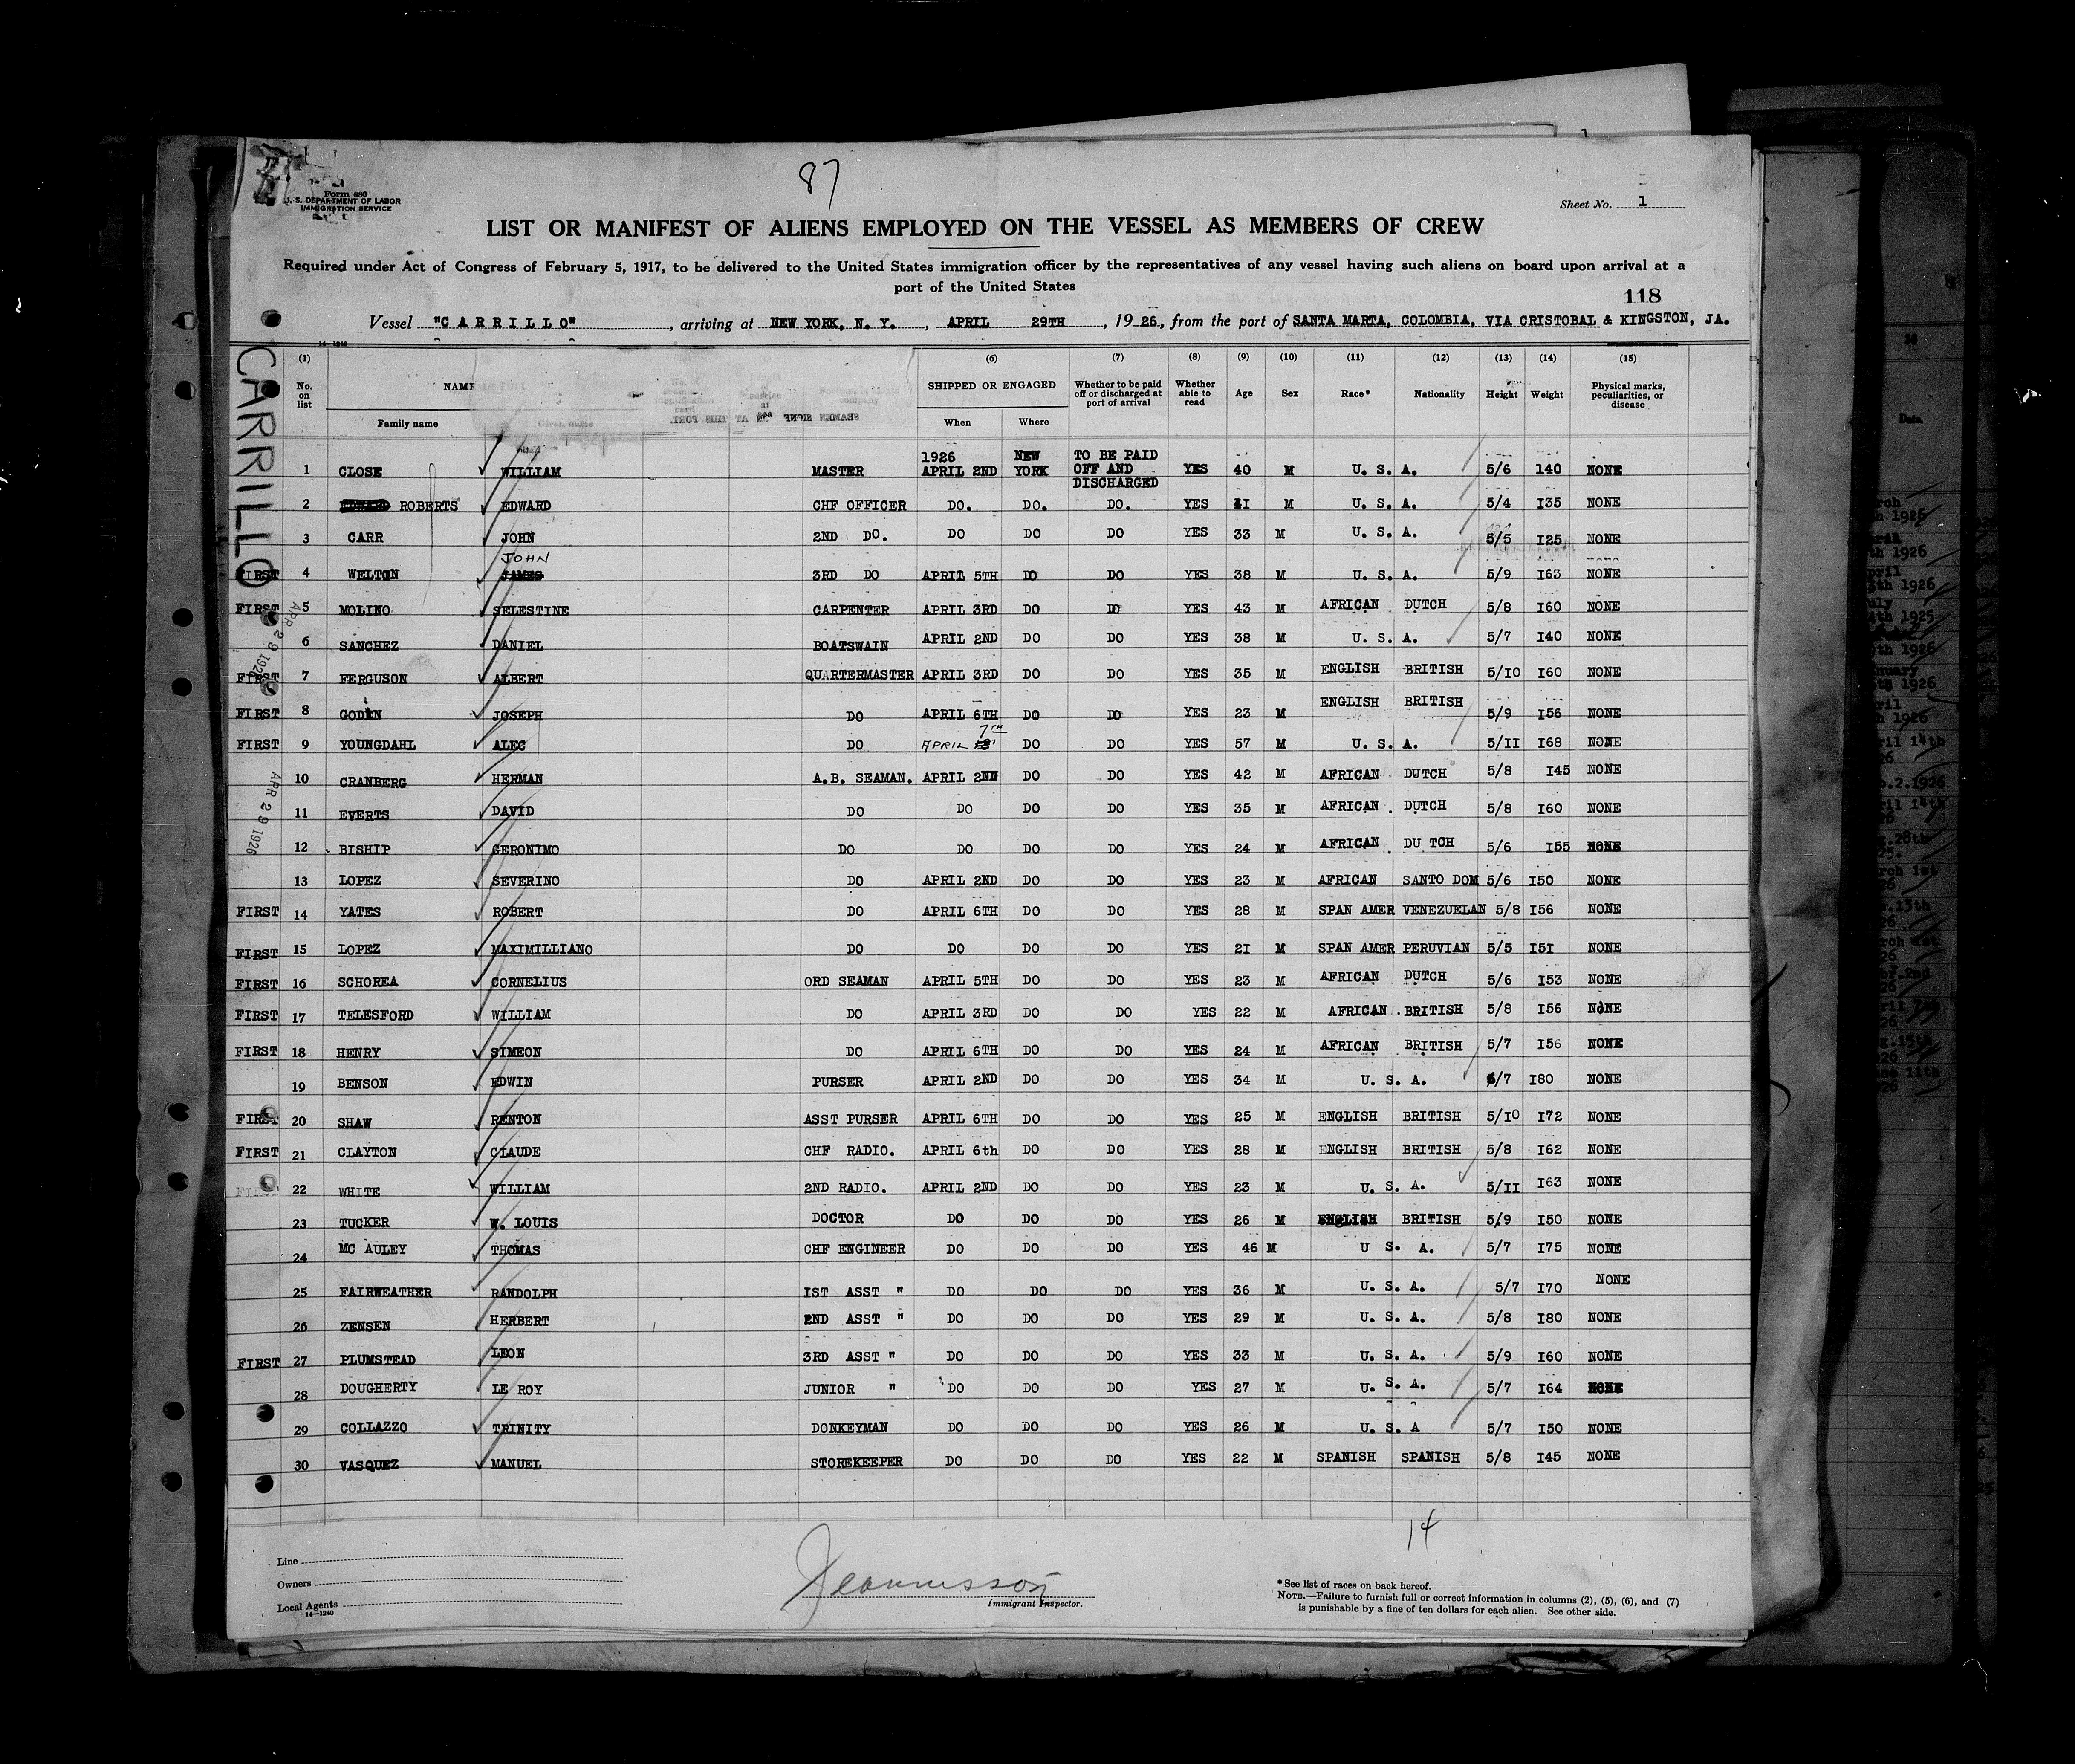 87
Form 680
U. S. DEPARTMENT OF LABOR
IMMIGRATION SERVICE
Sheet No. 1
LIST OR MANIFEST OF ALIENS EMPLOYED ON THE VESSEL AS MEMBERS OF CREW
Required under Act of Congress of February 5, 1917, to be delivered to the United States immigration officer by the representatives of any vessel having such aliens on board upon arrival at a
port of the United States
118
Vessel "CARRILLO", arriving at NEW YORK, N. Y., APRIL 29TH, 1926, from the port of SANTA MARTA, COLOMBIA, VIA CRISTOBAL & KINGSTON, JA.
CARRILLO
(1) (6) (7) (8) (9) (10) (11) (12) (13) (14) (15)
No. on list NAME Family name Given name SHIPPED OR ENGAGED When Where Whether to be paid off or discharged at port of arrival Whether able to read Age Sex Race* Nationality Height Weight Physical marks, peculiarities, or disease
1 CLOSE WILLIAM MASTER 1926 APRIL 2ND NEW YORK TO BE PAID OFF AND DISCHARGED YES 40 M U. S. A. 5/6 140 NONE
2 ROBERTS EDWARD CHF OFFICER DO. DO. DO. YES 41 M U. S. A. 5/4 I35 NONE
3 CARR JOHN 2ND DO. DO DO DO YES 33 M U. S. A. 5/5 I25 NONE
FIRST 4 WELTON JOHN JAMES 3RD DO APRIL 5TH DO DO YES 38 M U. S. A. 5/9 I63 NONE
FIRST 5 MOLINO SELESTINE CARPENTER APRIL 3RD DO DO YES 43 M AFRICAN DUTCH 5/8 I60 NONE
6 SANCHEZ DANIEL BOATSWAIN APRIL 2ND DO DO YES 38 M U. S. A. 5/7 I40 NONE
FIRST 7 FERGUSON ALBERT QUARTERMASTER APRIL 3RD DO DO YES 35 M ENGLISH BRITISH 5/I0 I60 NONE
FIRST 8 GODEN JOSEPH DO APRIL 6TH DO DO YES 23 M ENGLISH BRITISH 5/9 I56 NONE
FIRST 9 YOUNGDAHL ALEC DO APRIL 7TH DO DO YES 57 M U. S. A. 5/II I68 NONE
10 CRANBERG HERMAN A.B. SEAMAN. APRIL 2NN DO DO YES 42 M AFRICAN DUTCH 5/8 I45 NONE
11 EVERTS DAVID DO DO DO DO YES 35 M AFRICAN DUTCH 5/8 I60 NONE
12 BISHIP GERONIMO DO DO DO DO YES 24 M AFRICAN DU TCH 5/6 I55 NONE
13 LOPEZ SEVERINO DO APRIL 2ND DO DO YES 23 M AFRICAN SANTO DOM 5/6 I50 NONE
FIRST 14 YATES ROBERT DO APRIL 6TH DO DO YES 28 M SPAN AMER VENEZUELAN 5/8 I56 NONE
FIRST 15 LOPEZ MAXIMILLIANO DO DO DO DO YES 2I M SPAN AMER PERUVIAN 5/5 I5I NONE
FIRST 16 SCHOREA CORNELIUS ORD SEAMAN APRIL 5TH DO DO YES 23 M AFRICAN DUTCH 5/6 I53 NONE
FIRST 17 TELESFORD WILLIAM DO APRIL 3RD DO DO YES 22 M AFRICAN BRITISH 5/8 I56 NONE
FIRST 18 HENRY SIMEON DO APRIL 6TH DO DO YES 24 M AFRICAN BRITISH 5/7 I56 NONE
19 BENSON EDWIN PURSER APRIL 2ND DO DO YES 34 M U. S. A. 6/7 I80 NONE
FIRST 20 SHAW RENTON ASST PURSER APRIL 6TH DO DO YES 25 M ENGLISH BRITISH 5/I0 I72 NONE
FIRST 21 CLAYTON CLAUDE CHF RADIO. APRIL 6th DO DO YES 28 M ENGLISH BRITISH 5/8 I62 NONE
FIRST 22 WHITE WILLIAM 2ND RADIO. APRIL 2ND DO DO YES 23 M U. S. A. 5/II I63 NONE
23 TUCKER W. LOUIS DOCTOR DO DO DO YES 26 M ENGLISH BRITISH 5/9 I50 NONE
24 MC AULEY THOMAS CHF ENGINEER DO DO DO YES 46 M U S. A. 5/7 I75 NONE
25 FAIRWEATHER RANDOLPH IST ASST " DO DO DO YES 36 M U. S. A. 5/7 I70 NONE
26 ZENSEN HERBERT 2ND ASST " DO DO DO YES 29 M U. S. A. 5/8 I80 NONE
FIRST 27 PLUMSTEAD LEON 3RD ASST " DO DO DO YES 33 M U. S. A. 5/9 I60 NONE
28 DOUGHERTY LE ROY JUNIOR " DO DO DO YES 27 M U. S. A. 5/7 I64 NONE
29 COLLAZZO TRINITY DONKEYMAN DO DO DO YES 26 M U. S. A 5/7 I50 NONE
30 VASQUEZ MANUEL STOREKEEPER DO DO DO YES 22 M SPANISH SPANISH 5/8 I45 NONE
APR 29 1926
APR 29 1926
14
Line
Owners
Local Agents
14—1240
Immigrant Inspector.
* See list of races on back hereof.
NOTE.—Failure to furnish full or correct information in columns (2), (5), (6), and (7)
is punishable by a fine of ten dollars for each alien. See other side.
Date.